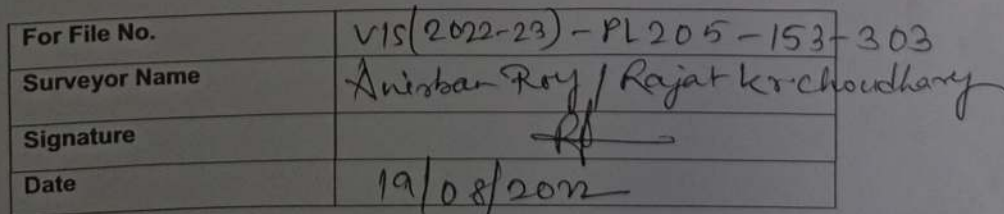 For File No. VIS(2022-23) - PL205-153-303
Surveyor Name Anirban Roy / Rajat kr choudhary
Signature
Date 19/08/2022